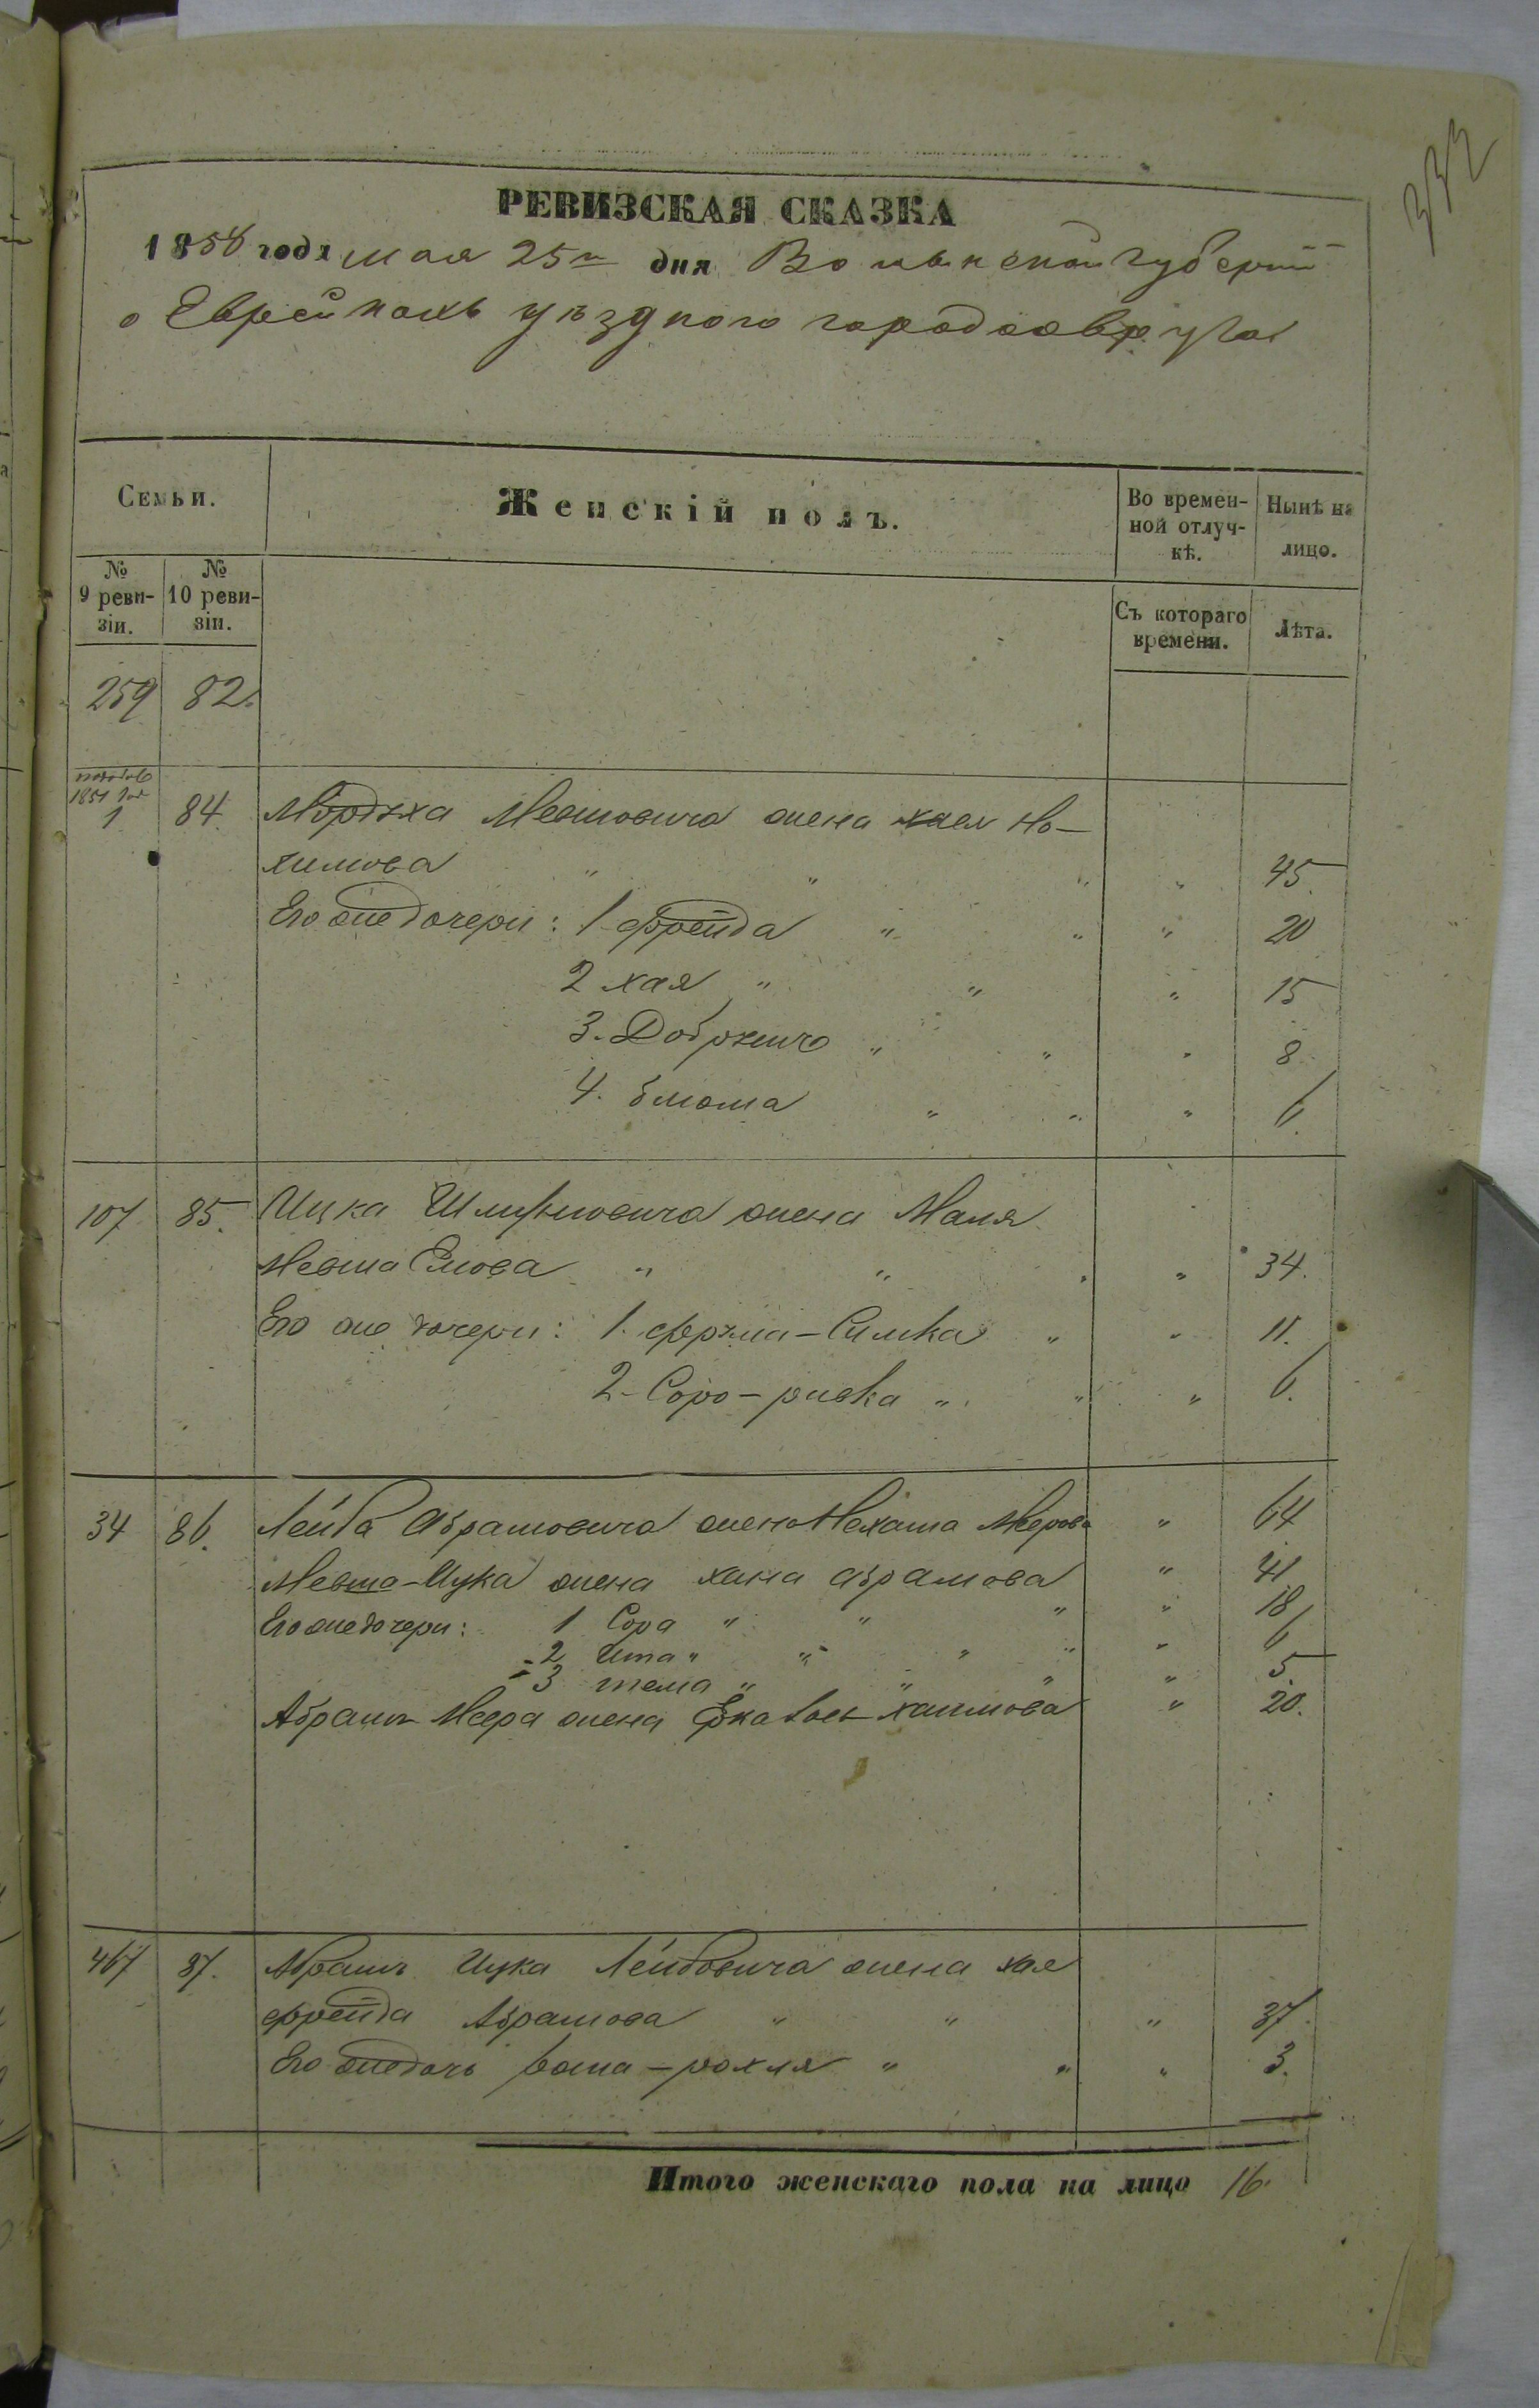 332
РЕВИЗСКАЯ СКАЗКА
1858 года мая 25 дня Волынской губерніи
о Еврейкахъ уѣзднаго города Овруча
Семьи.
Женскій полъ.
Во времен-
ной отлуч-
кѣ.
Нынѣ на
лицо.
№
9 реви-
зіи.
№
10 реви-
зіи.
Съ котораго
времени.
Лѣта.
259 82.
1851 1 84. Мордуха Мевшовича жена Но-
химова " " " " 45.
Его же дочери: 1 Фрейда " " " 20
2 хая " " " 15
3. " " " 8
4. блюма " " " 6.
107 85. Ицка Шмулиовича жена Маля
Мевша Елюва " " " " 34.
Его же дочери: 1. Фрума-Симка " " 11.
2. Соро-ривка " " " 6.
34 86. Лейба Абрамовича жена Нехама Меерова " 64
Мевша-Ицка жена хана абрамова " 41
Его же дочери: 1 Сора " " " " 18
2 Ита " " " " " 6
3 тема " " " " 5.
Абрамъ Меера жена хаимова " 20.
467 87. Абрамъ Ицка Лейбовича жена хая
фрейда Абрамова " " " 37.
Его же дочь рохля " " " 3.
Итого женскаго пола на лицо 16.